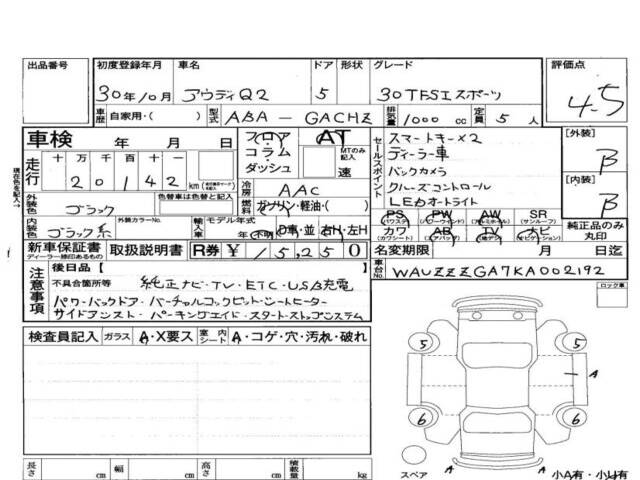 出品番号 初度登録年月 車名 ドア 形状 グレード 評価点
30年10月 アウディQ2 5 30TFSIスポーツ 4.5
車歴 自家用・( ) 型式 ABA-GACHZ 排気量 1000 cc 定員 5 人
車検 年 月 日 フロア AT セールスポイント スマートキー×2 [外装] B
走行 十 万 千 百 十 一 コラム MTのみ記入 ディーラー車
20142 km ダッシュ 速 バックカメラ
現在色を記入→ 色替車は色替と記入 冷房 AAC クルーズコントロール [内装] B
外装色 ブラック 燃料 ガソリン・軽油・( ) LEDオートライト
外装カラーNo. 輸入車 モデル年式 PS PW AW SR
内装色 ブラック系 年・不明 D車・並 右H・左H カワ AB TV ナビ 純正品のみ丸印
新車保証書 取扱説明書 R券 ¥ 15,250 名変期限 月 日迄
ディーラー捺印のあるもの 車台No. WAUZZZGA7KA002192
注意事項 後日品 [ ]
不具合箇所等 純正ナビ・TV・ETC・USB充電 ロック車
パワーバックドア・バーチャルコックピット・シートヒーター
サイドアシスト・パーキングエイド・スタートストップシステム
検査員記入 ガラス A・X要ス 室内シート A・コゲ・穴・汚れ・破れ
5 5
A
6 6
スペア A 小A有・小U有
長さ cm 幅 cm 高さ cm 積載量 kg